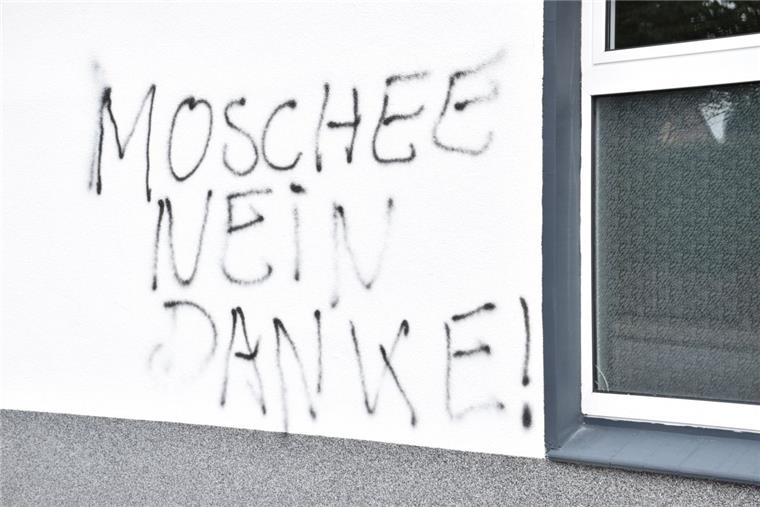 MOSCHEE
NEiN
DANKE!